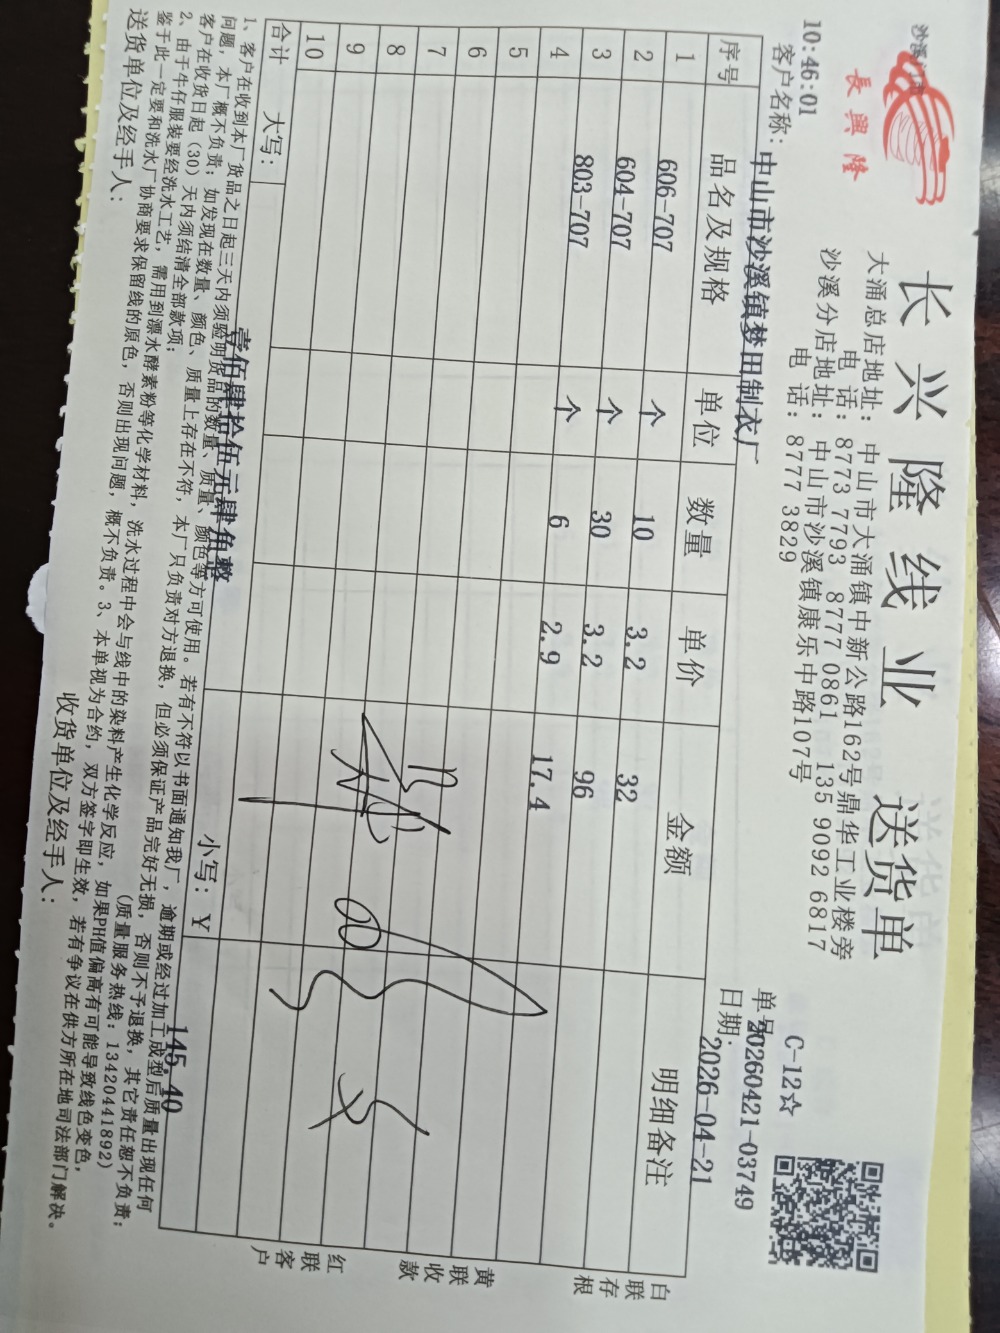 沙溪门市
長興隆
长兴隆线业 送货单
大涌总店地址：中山市大涌镇中新公路162号鼎华工业楼旁
电话：8773 7793 8777 0861 135 9092 6817
沙溪分店地址：中山市沙溪镇康乐中路107号
电话：8777 3829
C-12☆
10:46:01
单号 20260421-03749
客户名称：中山市沙溪镇梦田制衣厂
日期：2026-04-21
序号 品名及规格 单位 数量 单价 金额 明细备注
1 606-707 个 10 3.2 32
2 604-707 个 30 3.2 96
3 803-707 个 6 2.9 17.4
4
5
6
7
8
9
10
合计 大写：壹佰肆拾伍元肆角整 小写：￥145.40
白联存根
黄联收款
红联客户
1、客户在收到本厂货品之日起三天内须验明货品的数量、质量、颜色等方可使用。若有不符以书面通知我厂，逾期或经过加工成型后质量出现任何
问题，本厂概不负责；如发现在数量、颜色、质量上存在不符，本厂只负责对方退换，但必须保证产品完好无损，否则不予退换，其它责任恕不负责；
客户在收货日起（30）天内须结清全部款项； （质量服务热线：13420441892）
2、由于牛仔服装要经洗水工艺，需用到漂水酵素粉等化学材料，洗水过程中会与线中的染料产生化学反应，如果PH值偏高有可能导致线色变色，
鉴于此一定要和洗水厂协商要求保留线的原色，否则出现问题，概不负责。3、本单视为合约，双方签字即生效，若有争议在供方所在地司法部门解决。
送货单位及经手人： 收货单位及经手人：